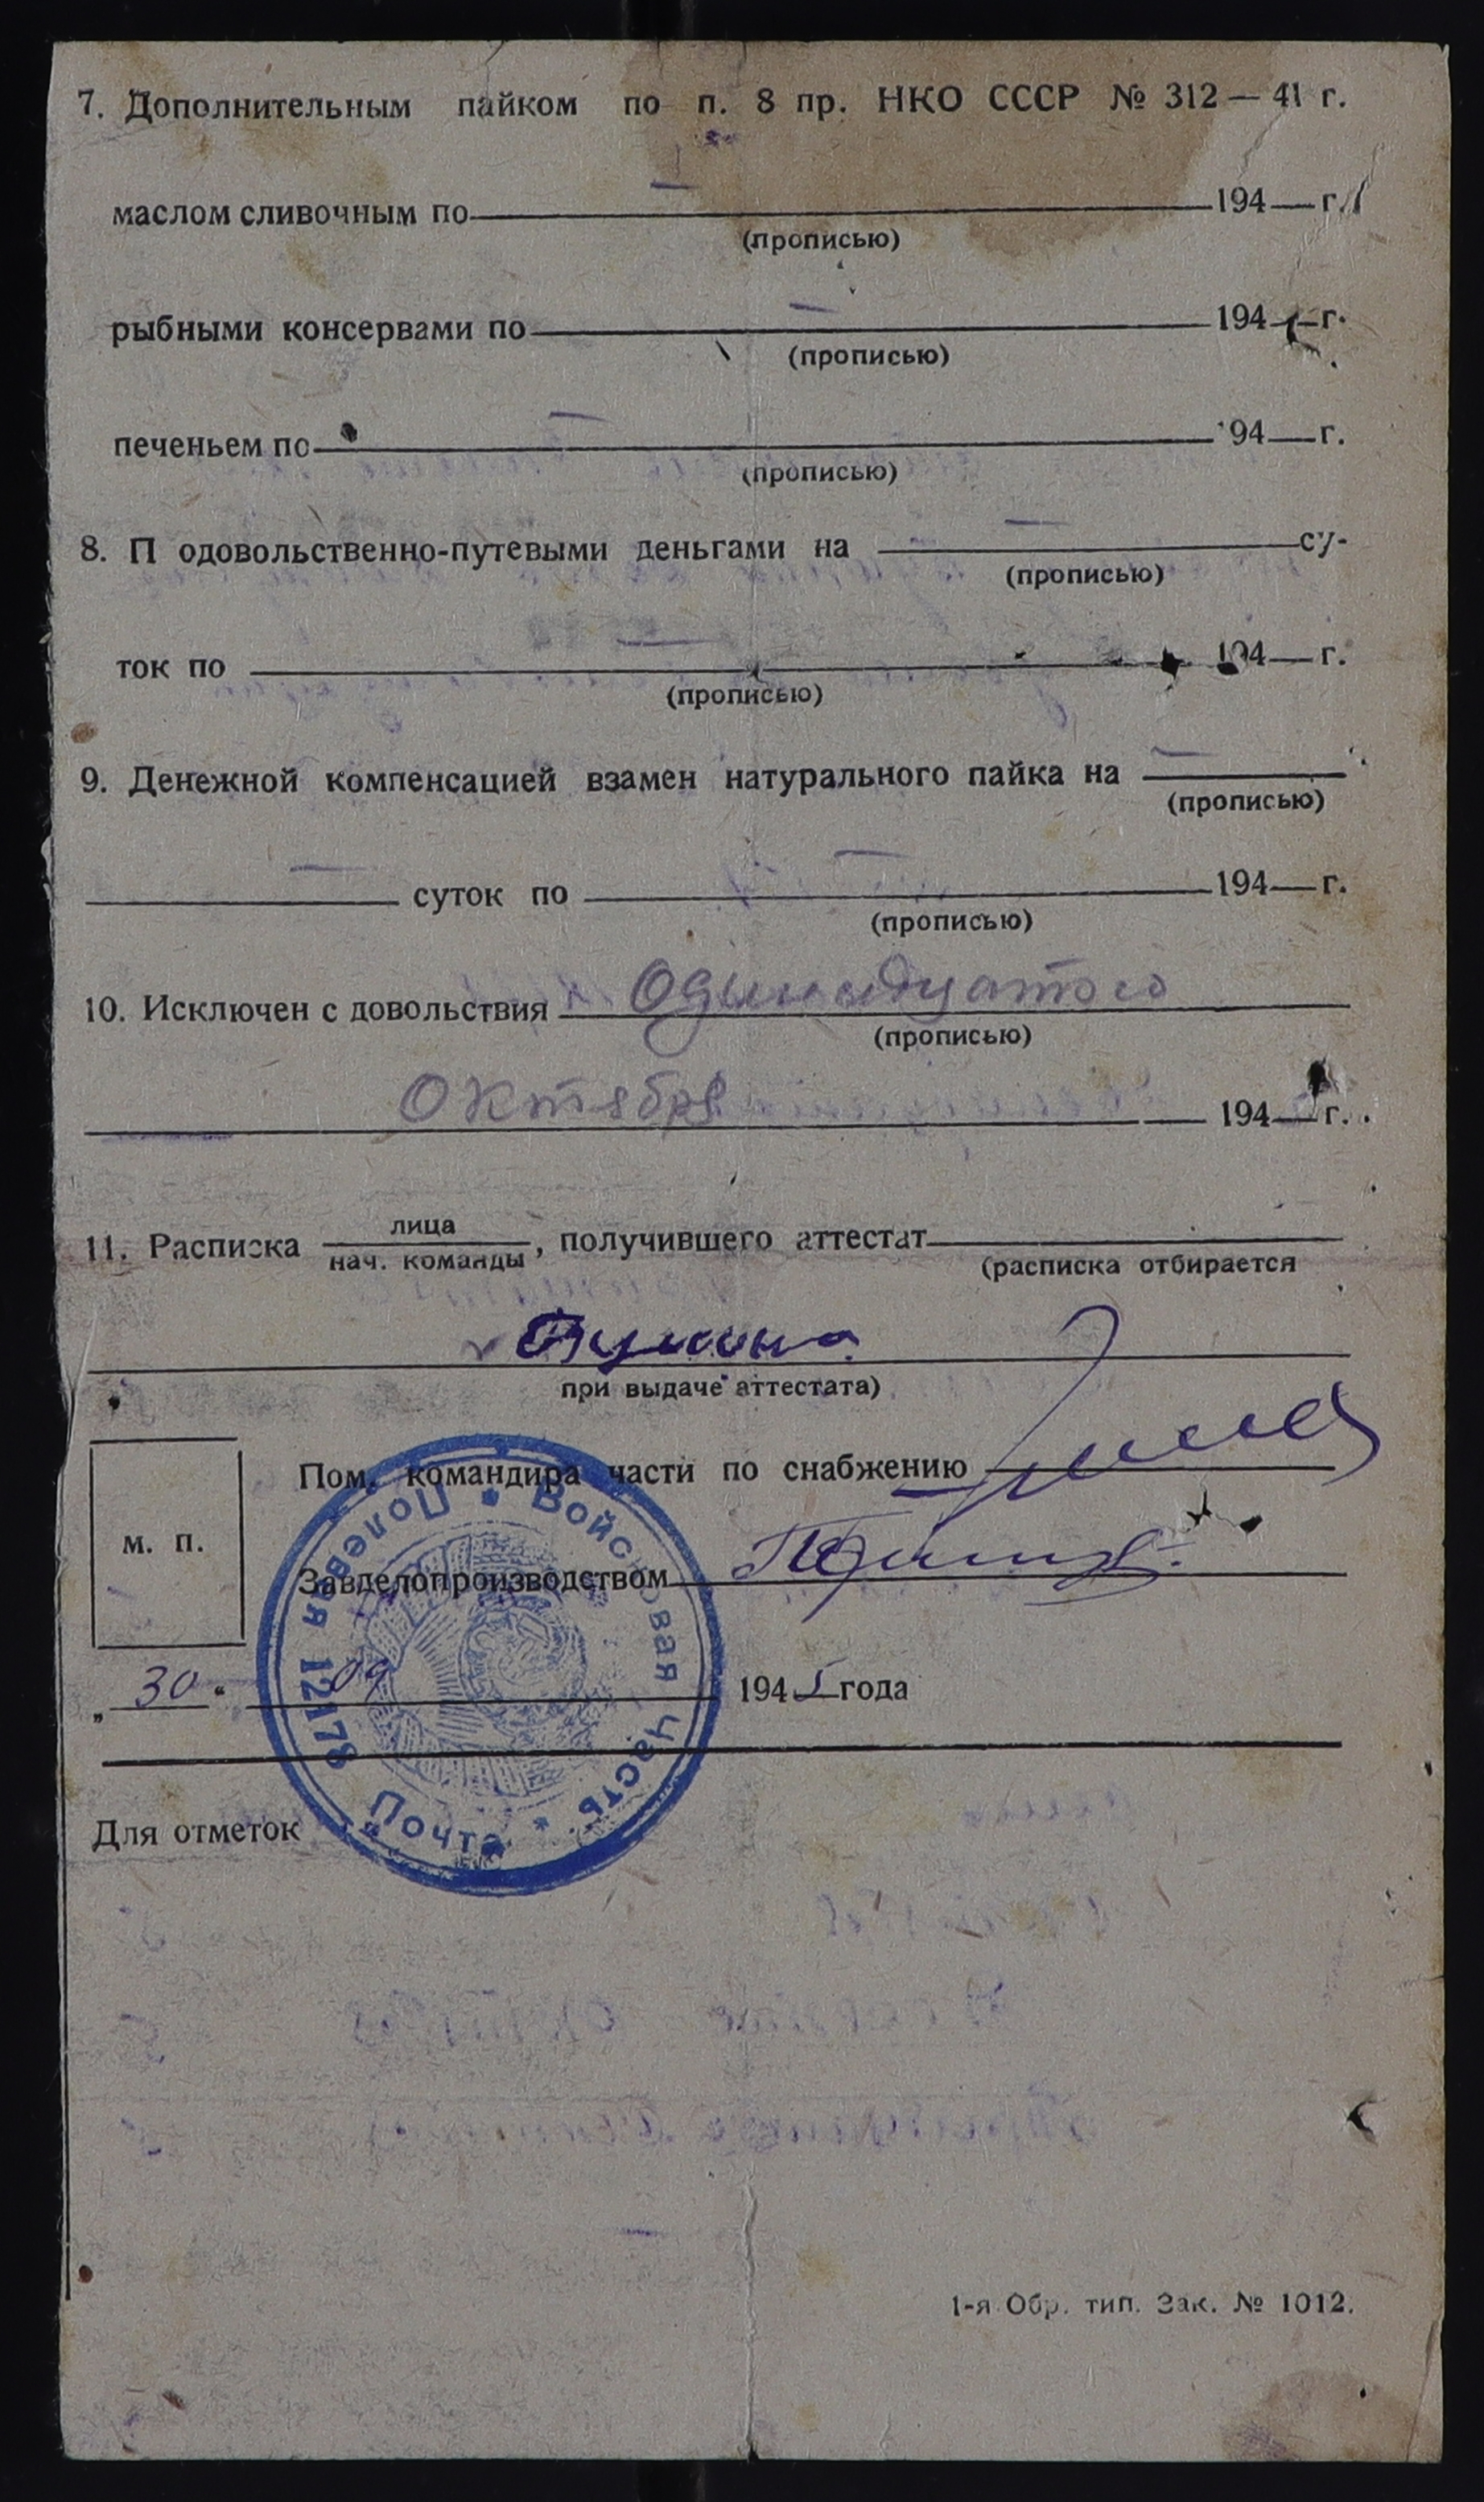 7. Дополнительным пайком по п. 8 пр. НКО СССР № 312 — 41 г.
маслом сливочным по — 194 — г.
(прописью)
рыбными консервами по — 194 — г.
(прописью)
печеньем по — 194 — г.
(прописью)
8. П одовольственно-путевыми деньгами на — су-
(прописью)
ток по — 194 — г.
(прописью)
9. Денежной компенсацией взамен натурального пайка на —
(прописью)
— суток по — 194 — г.
(прописью)
10. Исключен с довольствия Одинадцатого
(прописью)
Октября 194 г.
11. Расписка лица
нач. команды, получившего аттестат
(расписка отбирается
при выдаче аттестата)
Пом. командира части по снабжению
м. п.
Завделопроизводством
„30“ 09 1945 года
Войсковая часть * Полевая Почта 12178 *
Для отметок
1-я Обр. тип. Зак. № 1012.